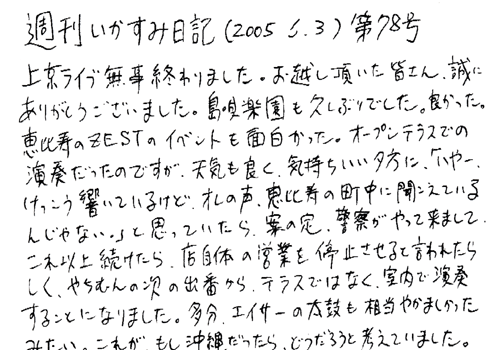 週刊いかすみ日記(2005 6.3)第78号
上京ライブ無事終わりました。お越し頂いた皆さん、誠に
ありがとうございました。島唄楽園も久しぶりでした。良かった。
恵比寿のZESTのイベントも面白かった。オープンテラスでの
演奏だったのですが、天気も良く、気持ちいい夕方に、「いやー、
けっこう響いているけど、オレの声、恵比寿の町中に聞こえている
んじゃない。」と思っていたら、案の定、警察がやって来まして、
これ以上続けたら、店自体の営業を停止させると言われたら
しく、やちむんの次の出番から、テラスではなく、室内で演奏
することになりました。多分、エイサーの太鼓も相当やかましかった
みたい。これが、もし沖縄だったら、どうだろうと考えていました。